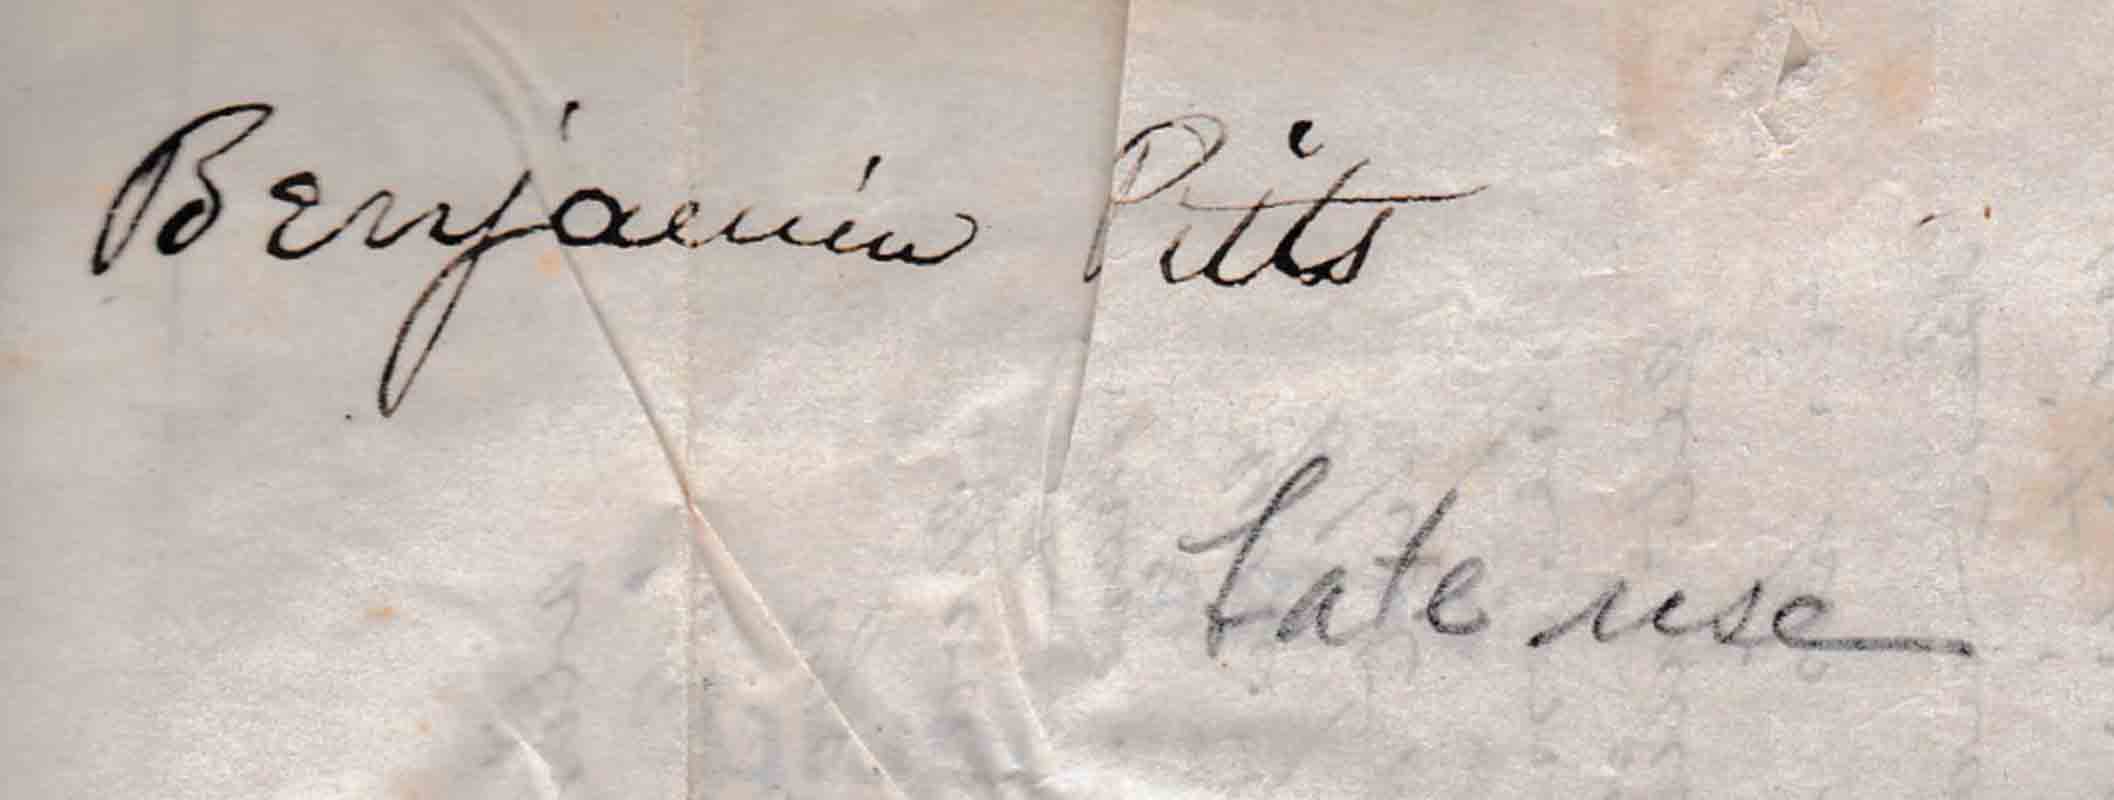 Benjamin Pitts
Late use